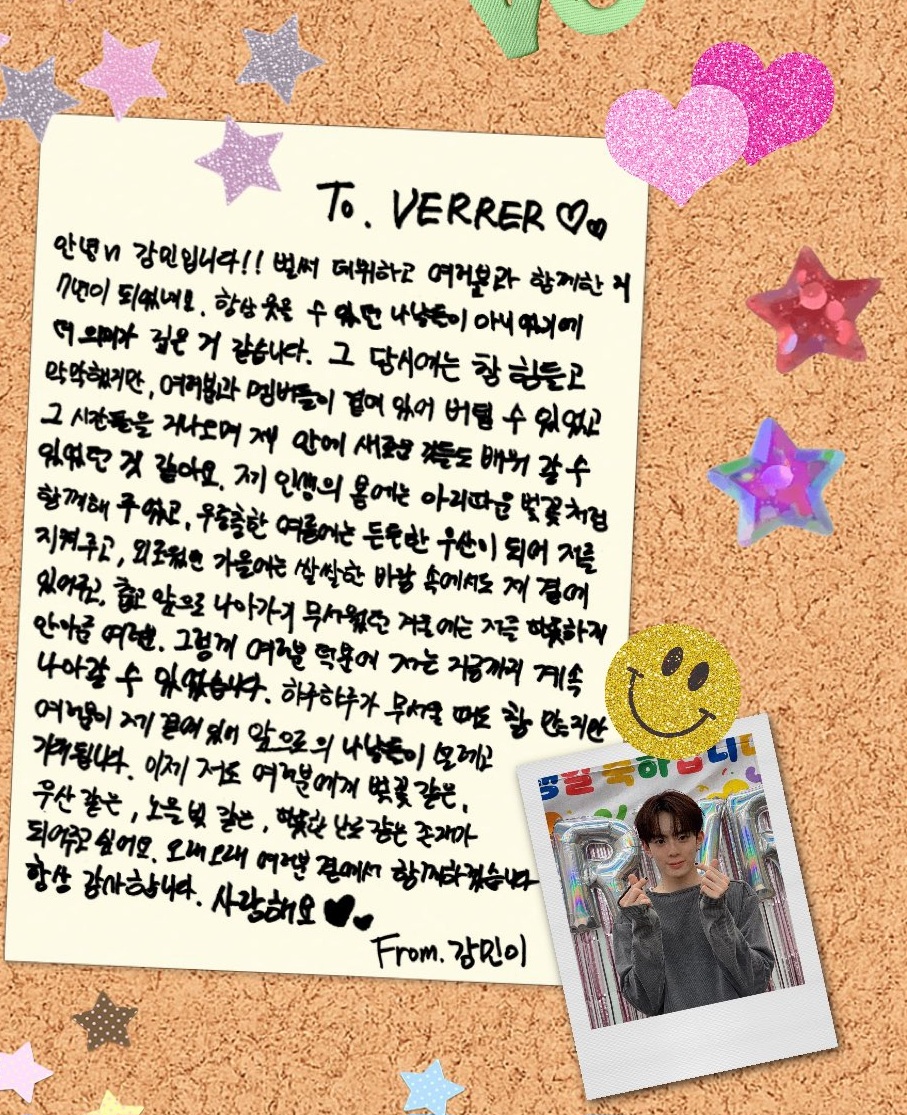 To. VERRER
안녕 강민입니다!! 벌써 데뷔하고 여러분과 함께한 지
7년이 되었네요. 항상 웃을 수 있던 나날들이 아니었기에
더 의미가 깊은 거 같습니다. 그 당시에는 참 힘들고
막막했지만, 여러분과 멤버들이 곁에 있어 버틸 수 있었고
그 시간들을 지나오며 제 안에 새로운 것들도 배워 갈 수
있었던 것 같아요. 저의 인생의 봄에는 아리따운 벚꽃처럼
함께해 주었고, 우중충한 여름에는 든든한 우산이 되어 저를
지켜주고, 외로웠던 가을에는 쌀쌀한 바람 속에서도 제 곁에
있어주고, 춥고 앞으로 나아가기 무서웠던 겨울에는 저를 따뜻하게
안아준 여러분. 그렇게 여러분 덕분에 저는 지금까지 계속
나아갈 수 있었습니다. 하루하루가 무서울 때도 참 많지만
여러분이 제 곁에 있어 앞으로의 나날들이 설레고
기대됩니다. 이제 저도 여러분에게 벚꽃 같은,
우산 같은, 노을 빛 같은, 따뜻한 난로 같은 존재가
되어주고 싶어요. 오래오래 여러분 곁에서 함께하겠습니다
항상 감사합니다. 사랑해요
From. 강민이
축하합니다